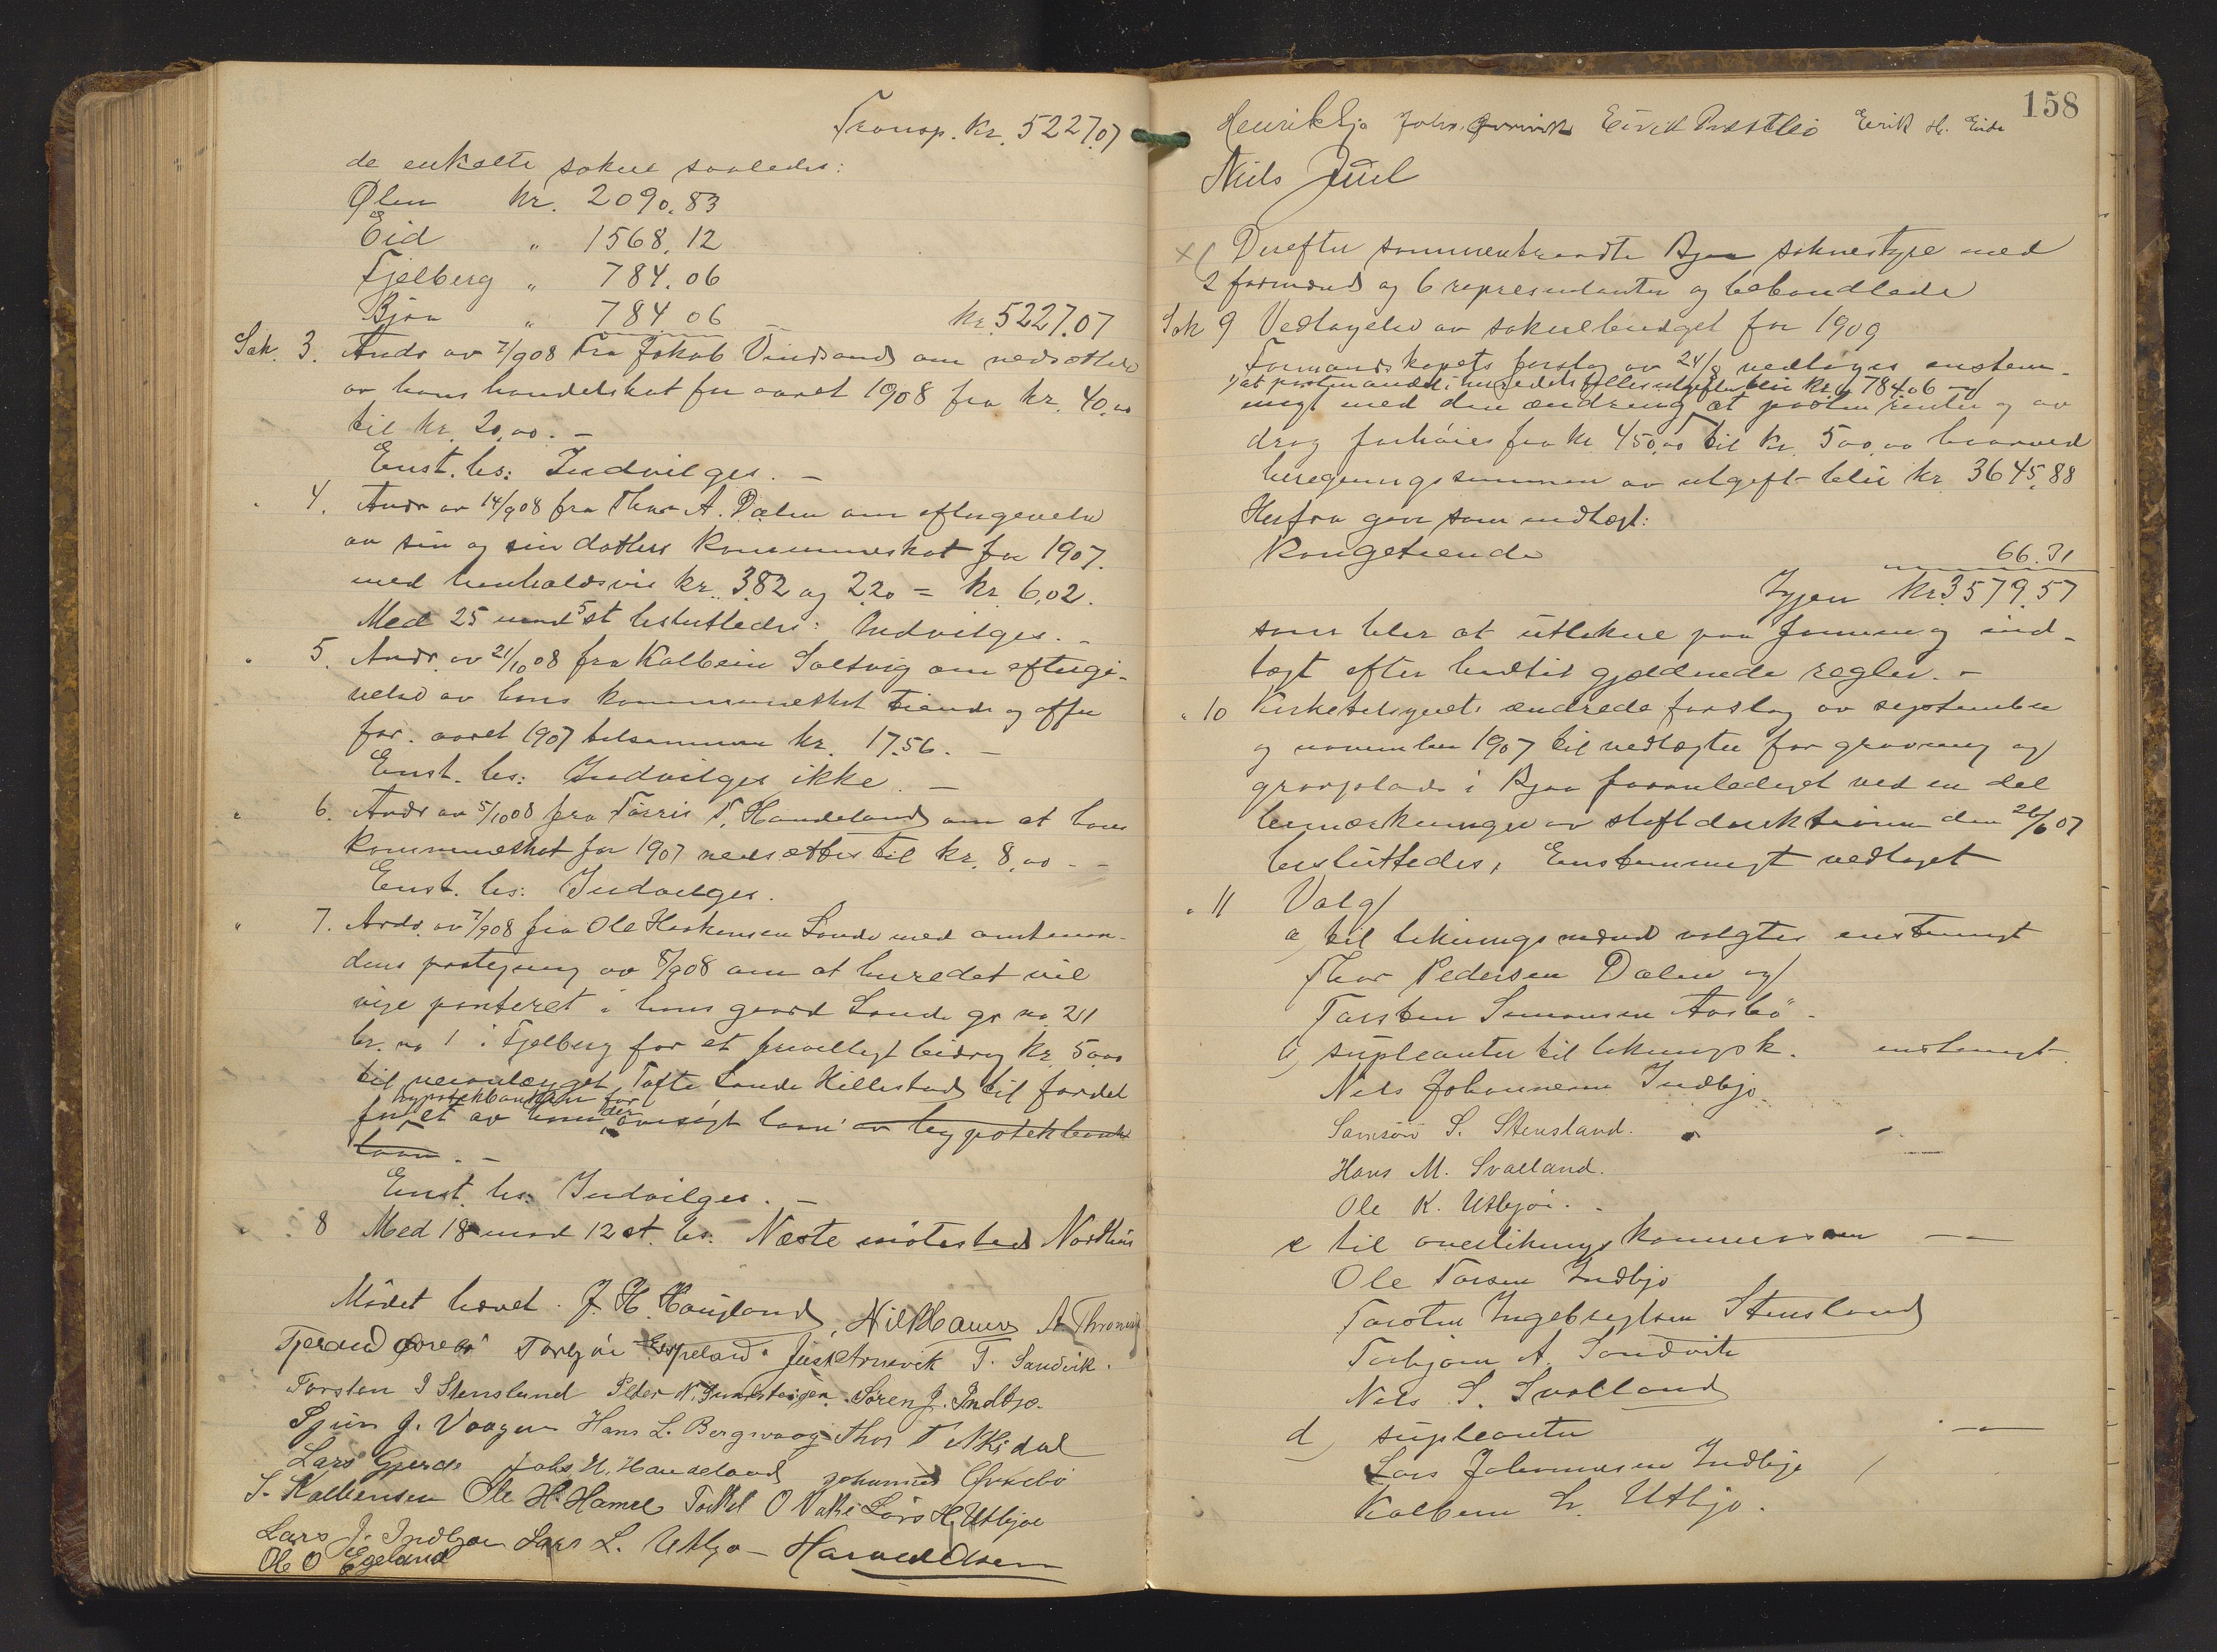 Transp. Kr. 5227.07
de enkelte sokne saaledes:
Ølen kr. 2090.83
Eid " 1568.12
Fjelberg " 784.06
Bjoa " 784 06 – kr. 5227.07
Sak. 3. Andr av 7/908 fra Jakob Vindsand om nedsættelse
av hans handelskat for aaret 1908 fra kr. 40.00
til kr. 20,00. –
Enst. bs: Indvilges. –
" 4. Andr av 14/908 fra Thor A. Dalen om eftergivelse
av sin og sin datters kommuneskat for 1907.
med henholdsvis kr. 3.82 og 2.20 = kr. 6,02.
Med 25 mod 5 st besluttedes: Indvilges. –
" 5. Andr. av 21/10 08 fra Kolbein Saltvig om eftergi-
velse av hans kommuneskat tiende og offer
for aaret 1907 tilsammen kr. 17.56. –
Enst. bs: Indvilges ikke. –
" 6. Andr av 5/1008 fra Tørris T. Handeland om at hans
kommuneskat for 1907 nedsættes til kr. 8,00 –
Enst. bs: Indvilges.
" 7. Andr. av 7/908 fra Ole Haakensen Sande med amtman-
dens paategning av 8/908 om at heredet vil
vige panteret i hans gaard Sande gr no 21
br. no 1 i Fjelberg for et frivilligt bidrag kr. 50,00
til veianlægget Tofte Sande Killestad til fordel
hypothekbanken for
for et av ham der ansøgt laan av hypotekbank
laan. –
Enst. bs: Indvilges. –
" 8 Med 18 mod 12 st. bs. Næste møtested Nordhus
Mødet hævet. J. H. Haugland, Nil Hamre A. Thronnes
Tjerand Torbjøn Espeland Just Arnevik T. Sandvik.
Torsten I Stensland Peder N. Søren J. Indbjo.
J. Vaagen Hans L. Bergevaag Thor T
Lars Gjerde Johs H. Handeland Johannes Ørkebø
S. Kolbensen Ole H. Hamre Torkel O Vatne Lars H. Utbjoe
Lars J. Indbjoe Lars L. Utbjo – Harald Olsen
Ole O Egeland
158
Henrik Bjo Johs. Eivik Eirik H. Eide
Niels Juul
x) Derefter sammentraadte Bjoa soknestyre med
2 formænd og 6 representanter og behandlede
Sak 9 Vedtagelse av soknebudget for 1909
Formandskapets forslag av 24/8 vedtages enstem-
1) at posten andel i heredets fællesutgifter blir kr. 784.06 og
migt med den ændring at posten renter og av
drag forhøies fra kr. 450,00 til kr. 500,00 hvorved
beregningssummen av utgift blir kr. 3645,88
Herfra gaar som indtægt:
Kongetiende 66.31
Igjen kr. 3579.57
som blir at utlikne paa formue og ind-
tægt efter hertil gjældende regler. –
" 10 Kirketilsynets ændrede forslag av september
og november 1907 til vedtægter for gravning og
gravplads i Bjoa foranlediget ved en del
bemærkninger av stiftdirektionen den 26/6 07
besluttedes, Enstemmigt vedtaget
" 11 Valg
a) til likningsmænd valgtes enstemmigt
Thor Pedersen Dalen og
Torsten Simonsen Aasbø.
b) supleanter til likningsk. enstemigt
Nils Johannesen Indbjo.
Samson S. Stensland. "
Hans M. Svolland.
Ole K. Utbjoe.
c til overlikningskommissionen – –
Ole Larsen Indbjo
Torsten Ingebregtsen Stensland
Torbjørn A. Sandvik
Nils S. Svolland
d) supleanter –
Lars Johannesen Indbjo
Kolbein L. Utbjo.